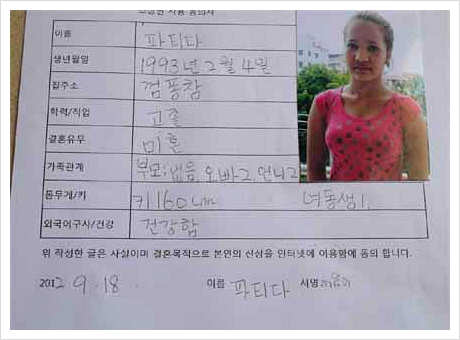 초상권 사용 동의서
이름 파티다
생년월일 1993년 2월 4일
집주소 껌퐁참
학력/직업 고졸
결혼유무 미혼
가족관계 부모:없음, 오빠2, 언니2
몸무게/키 키160cm 여동생1.
외국어구사/건강 건강함
위 작성한 글은 사실이며 결혼목적으로 본인의 신상을 인터넷에 이용함에 동의 합니다.
2012 9.18 이름 파티다 서명